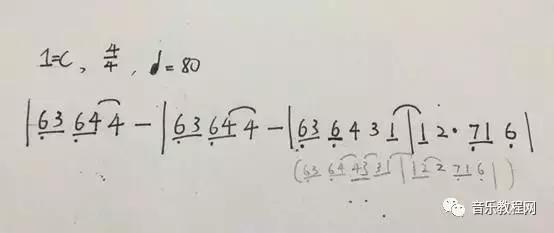 1=C, 4/4, ♩=80
|63 644 — |63 644 — |63 6431 |12· 71 6|
(63 64 43 31 |12 2 71 6| )
音乐教程网